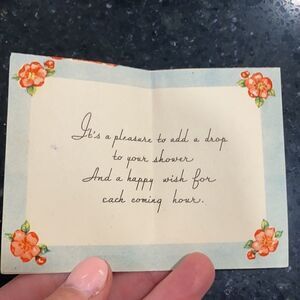 It's a pleasure to add a drop
to your shower
And a happy wish for
each coming hour.